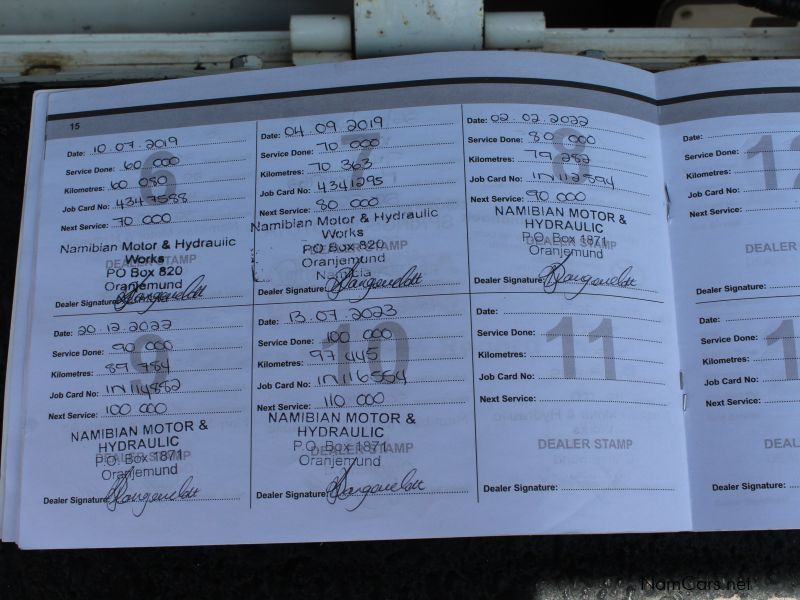 15
6
Date: 10.07.2019
Service Done: 60 000
Kilometres: 60 080
Job Card No: 4347588
Next Service: 70 000
Namibian Motor & Hydraulic
Works
DEALER STAMP
PO Box 820
Oranjemund
Dealer Signature:
7
Date: 04.09.2019
Service Done: 70 000
Kilometres: 70 363
Job Card No: 4341295
Next Service: 80 000
Namibian Motor & Hydraulic
Works
PO Box 820
DEALER STAMP
Oranjemund
Namibia
Dealer Signature:
8
Date: 02.02.2022
Service Done: 80 000
Kilometres: 79 282
Job Card No: IN112594
Next Service: 90 000
NAMIBIAN MOTOR &
HYDRAULIC
P.O. Box 1871
DEALER STAMP
Oranjemund
Dealer Signature:
9
Date: 20.12.2022
Service Done: 90 000
Kilometres: 89 784
Job Card No: IN114852
Next Service: 100 000
NAMIBIAN MOTOR &
HYDRAULIC
DEALER STAMP
P.O. Box 1871
Oranjemund
Dealer Signature:
10
Date: 13.07.2023
Service Done: 100 000
Kilometres: 97 445
Job Card No: IN116554
Next Service: 110 000
NAMIBIAN MOTOR &
HYDRAULIC
P.O. Box 1871
DEALER STAMP
Oranjemund
Dealer Signature:
11
Date:
Service Done:
Kilometres:
Job Card No:
Next Service:
DEALER STAMP
Dealer Signature:
12
Date:
Service Done:
Kilometres:
Job Card No:
Next Service:
DEALER
Dealer Signature:
Date:
Service Done:
Kilometres:
Job Card No:
Next Service:
DEAL
Dealer Signature:
NamCars.net